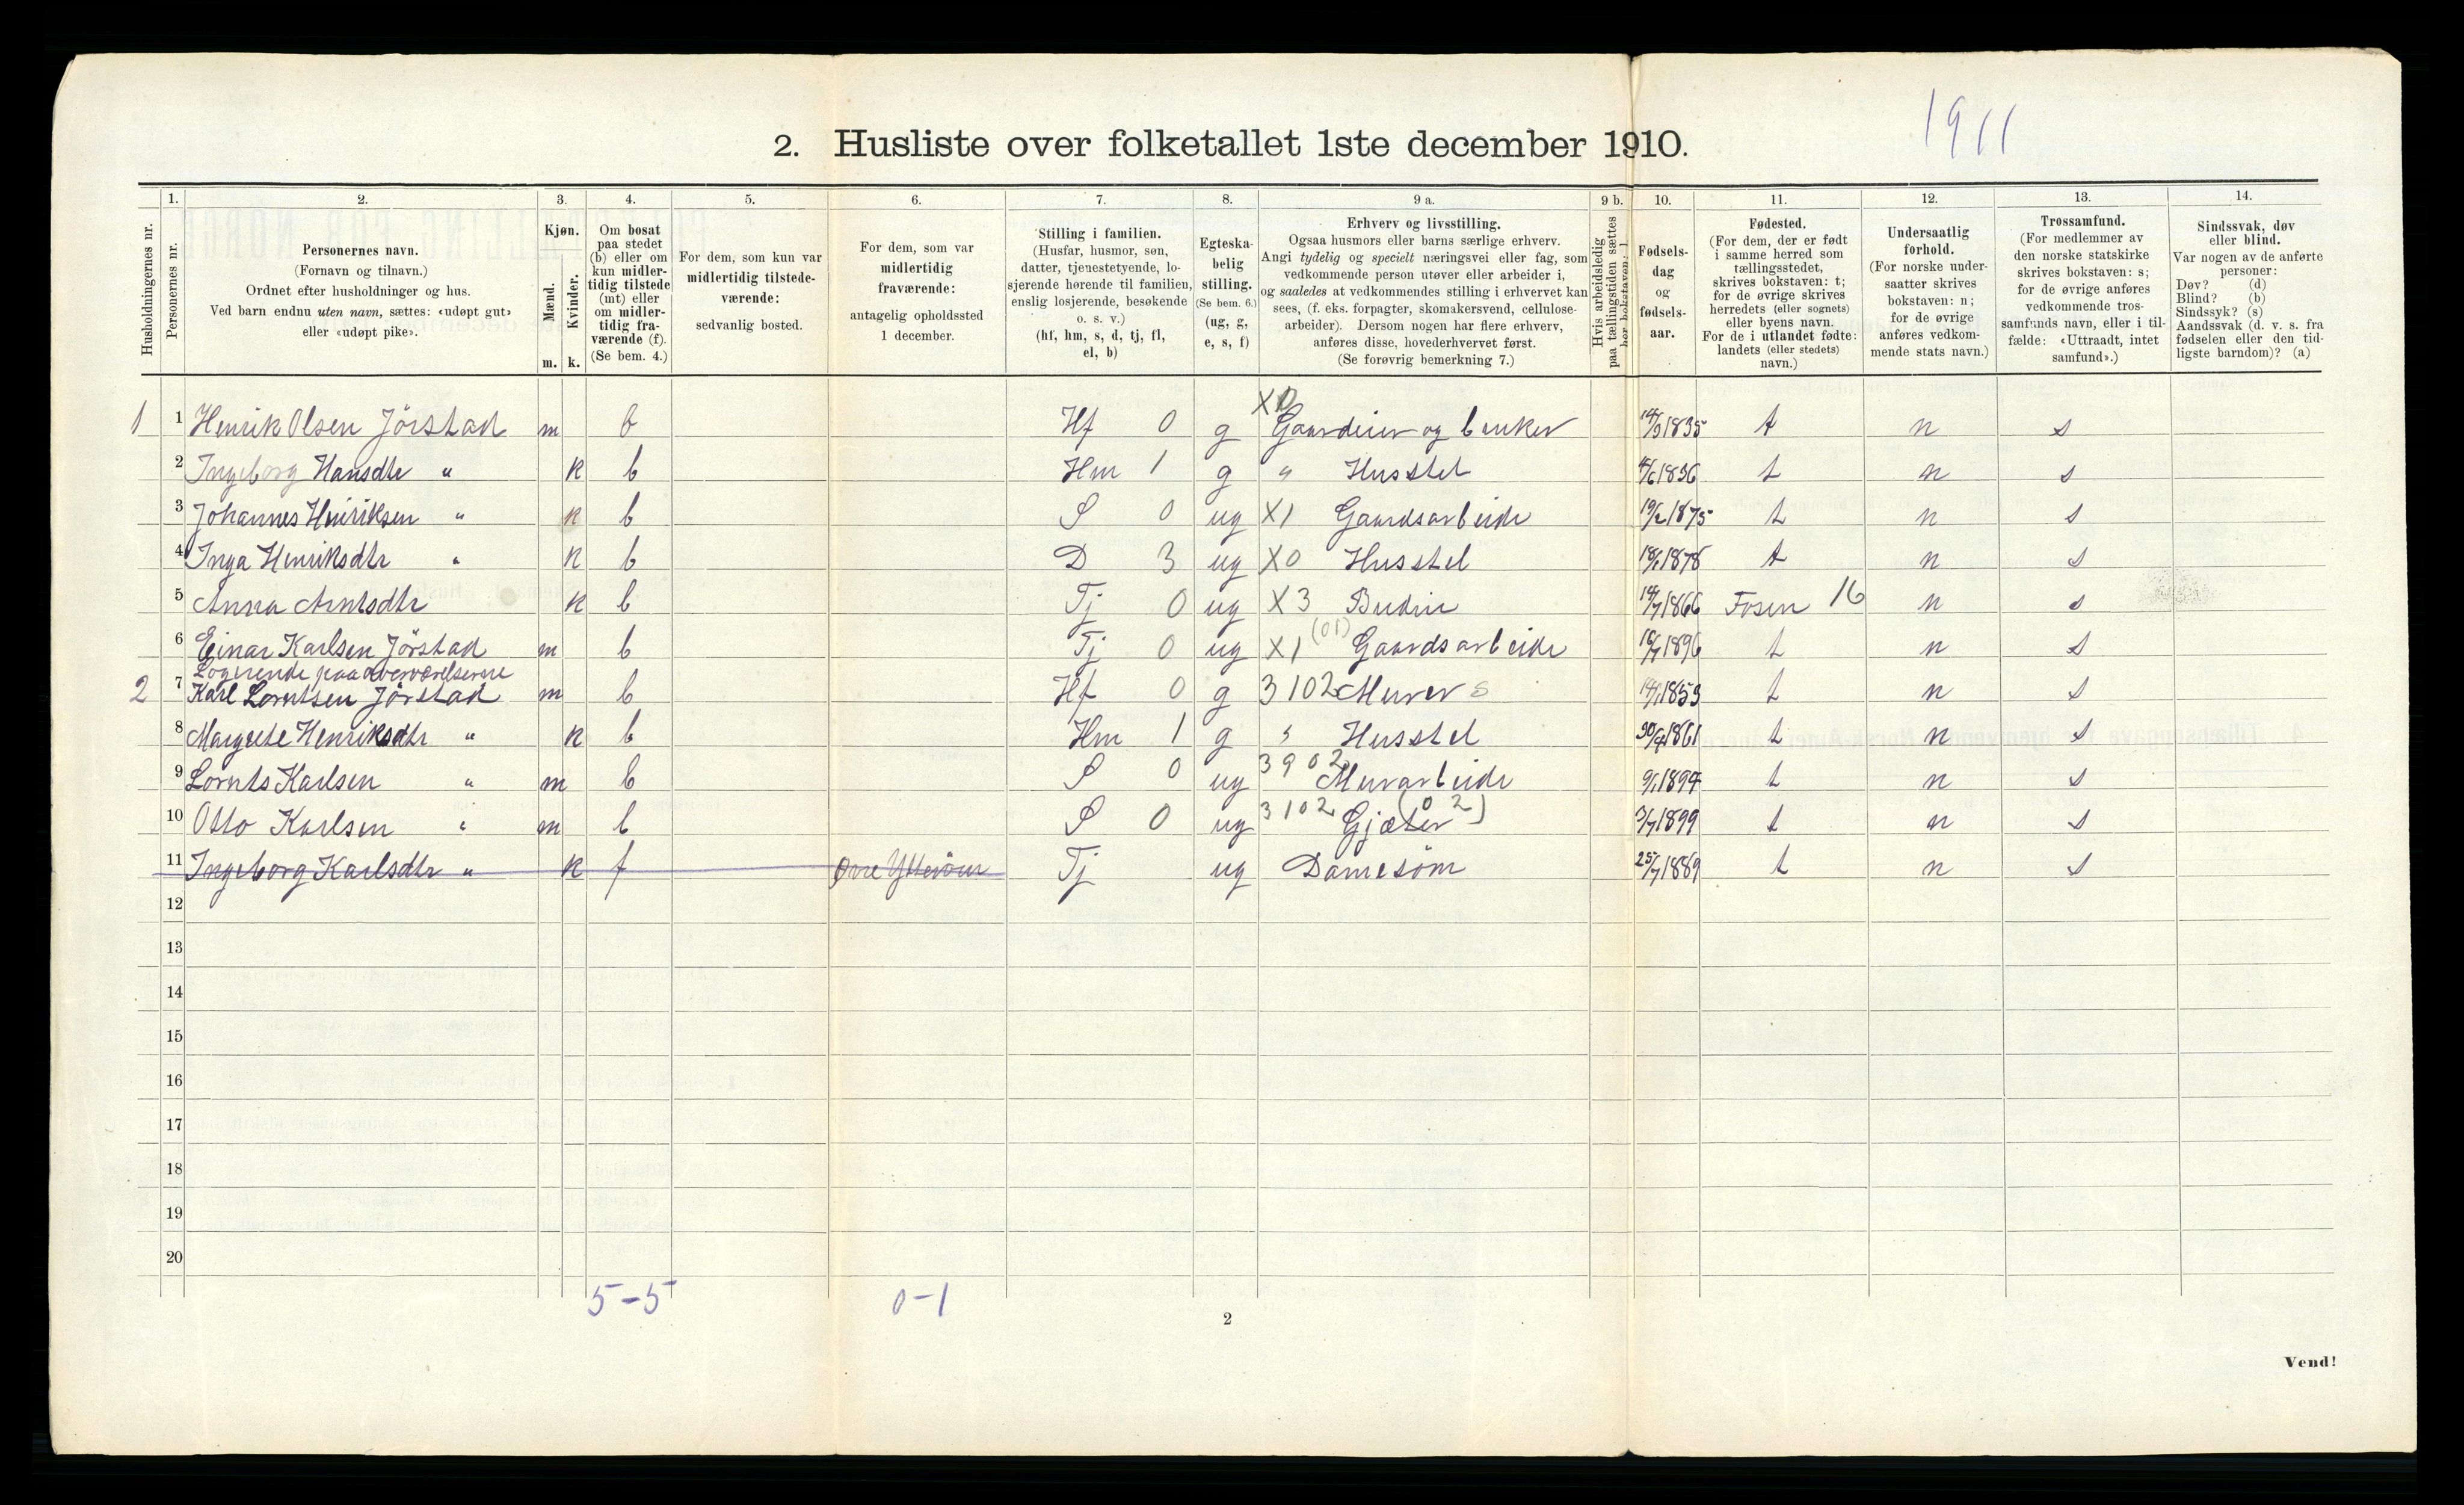 1911
2. Husliste over folketallet 1ste december 1910.
Husholdningernes nr.
1.
Personernes nr.
2.
Personernes navn.
(Fornavn og tilnavn.)
Ordnet efter husholdninger og hus.
Ved barn endnu uten navn, sættes: «udøpt gut»
eller «udøpt pike».
3.
Kjøn.
Mænd.
m.
Kvinder.
k.
4.
Om bosat
paa stedet
(b) eller om
kun midler-
tidig tilstede
(mt) eller
om midler-
tidig fra-
værende (f).
(Se bem. 4.)
5.
For dem, som kun var
midlertidig tilstede-
værende:
sedvanlig bosted.
6.
For dem, som var
midlertidig
fraværende:
antagelig opholdssted
1 december.
7.
Stilling i familien.
(Husfar, husmor, søn,
datter, tjenestetyende, lo-
sjerende hørende til familien,
enslig losjerende, besøkende
o. s. v.)
(hf, hm, s, d, tj, fl,
el, b)
8.
Egteska-
belig
stilling.
(Se bem. 6.)
(ug, g,
e, s, f)
9 a.
Erhverv og livsstilling.
Ogsaa husmors eller barns særlige erhverv.
Angi tydelig og specielt næringsvei eller fag, som
vedkommende person utøver eller arbeider i,
og saaledes at vedkommendes stilling i erhvervet kan
sees, (f. eks. forpagter, skomakersvend, cellulose-
arbeider). Dersom nogen har flere erhverv,
anføres disse, hovederhvervet først.
(Se forøvrig bemerkning 7.)
9 b.
Hvis arbeidsledig
paa tællingstiden sættes
her bokstaven: l
10.
Fødsels-
dag
og
fødsels-
aar.
11.
Fødested.
(For dem, der er født
i samme herred som
tællingsstedet,
skrives bokstaven: t;
for de øvrige skrives
herredets (eller sognets)
eller byens navn.
For de i utlandet fødte:
landets (eller stedets)
navn.)
12.
Undersaatlig
forhold.
(For norske under-
saatter skrives
bokstaven: n;
for de øvrige
anføres vedkom-
mende stats navn.)
13.
Trossamfund.
(For medlemmer av
den norske statskirke
skrives bokstaven: s;
for de øvrige anføres
vedkommende tros-
samfunds navn, eller i til-
fælde: «Uttraadt, intet
samfund».)
14.
Sindssvak, døv
eller blind.
Var nogen av de anførte
personer:
Døv? (d)
Blind? (b)
Sindssyk? (s)
Aandssvak (d. v. s. fra
fødselen eller den tid-
ligste barndom)? (a)
1 1 Henrik Olsen Jörstad m b Hf 0 g X0 Gaardeier og bruker 14/3 1835 t n s
2 Ingeborg Hansdtr " k b Hm 1 g " Husstel 4/6 1836 t n s
3 Johannes Henriksen " k b S 0 ug X1 Gaardsarbeide 19/2 1875 t n s
4 Inga Henriksdtr " k b D 3 ug X0 Husstel 18/1 1878 t n s
5 Anna Arntsdtr k b Tj 0 ug X3 Budeie 14/7 1866 Fosen 16 n s
6 Einar Karlsen Jörstad m b Tj 0 ug X1 (01) Gaardsarbeide 16/7 1896 t n s
Logerende paa overværelserne
2 7 Karl Lorntsen Jörstad m b Hf 0 g 3102 Murer s 14/1 1853 t n s
8 Margrete Henriksdtr " k b Hm 1 g " Husstel 30/4 1861 t n s
9 Lornts Karlsen " m b S 0 ug 3902 Murarbeide 9/1 1894 t n s
10 Otto Karlsen " m b S 0 ug 3102 Gjæter (02) 3/7 1899 t n s
11 Ingeborg Karlsdtr " k f Øvre Ytterøen Tj ug Damesöm 25/7 1889 t n s
12
13
14
15
16
17
18
19
20
5-5 0-1
2
Vend!